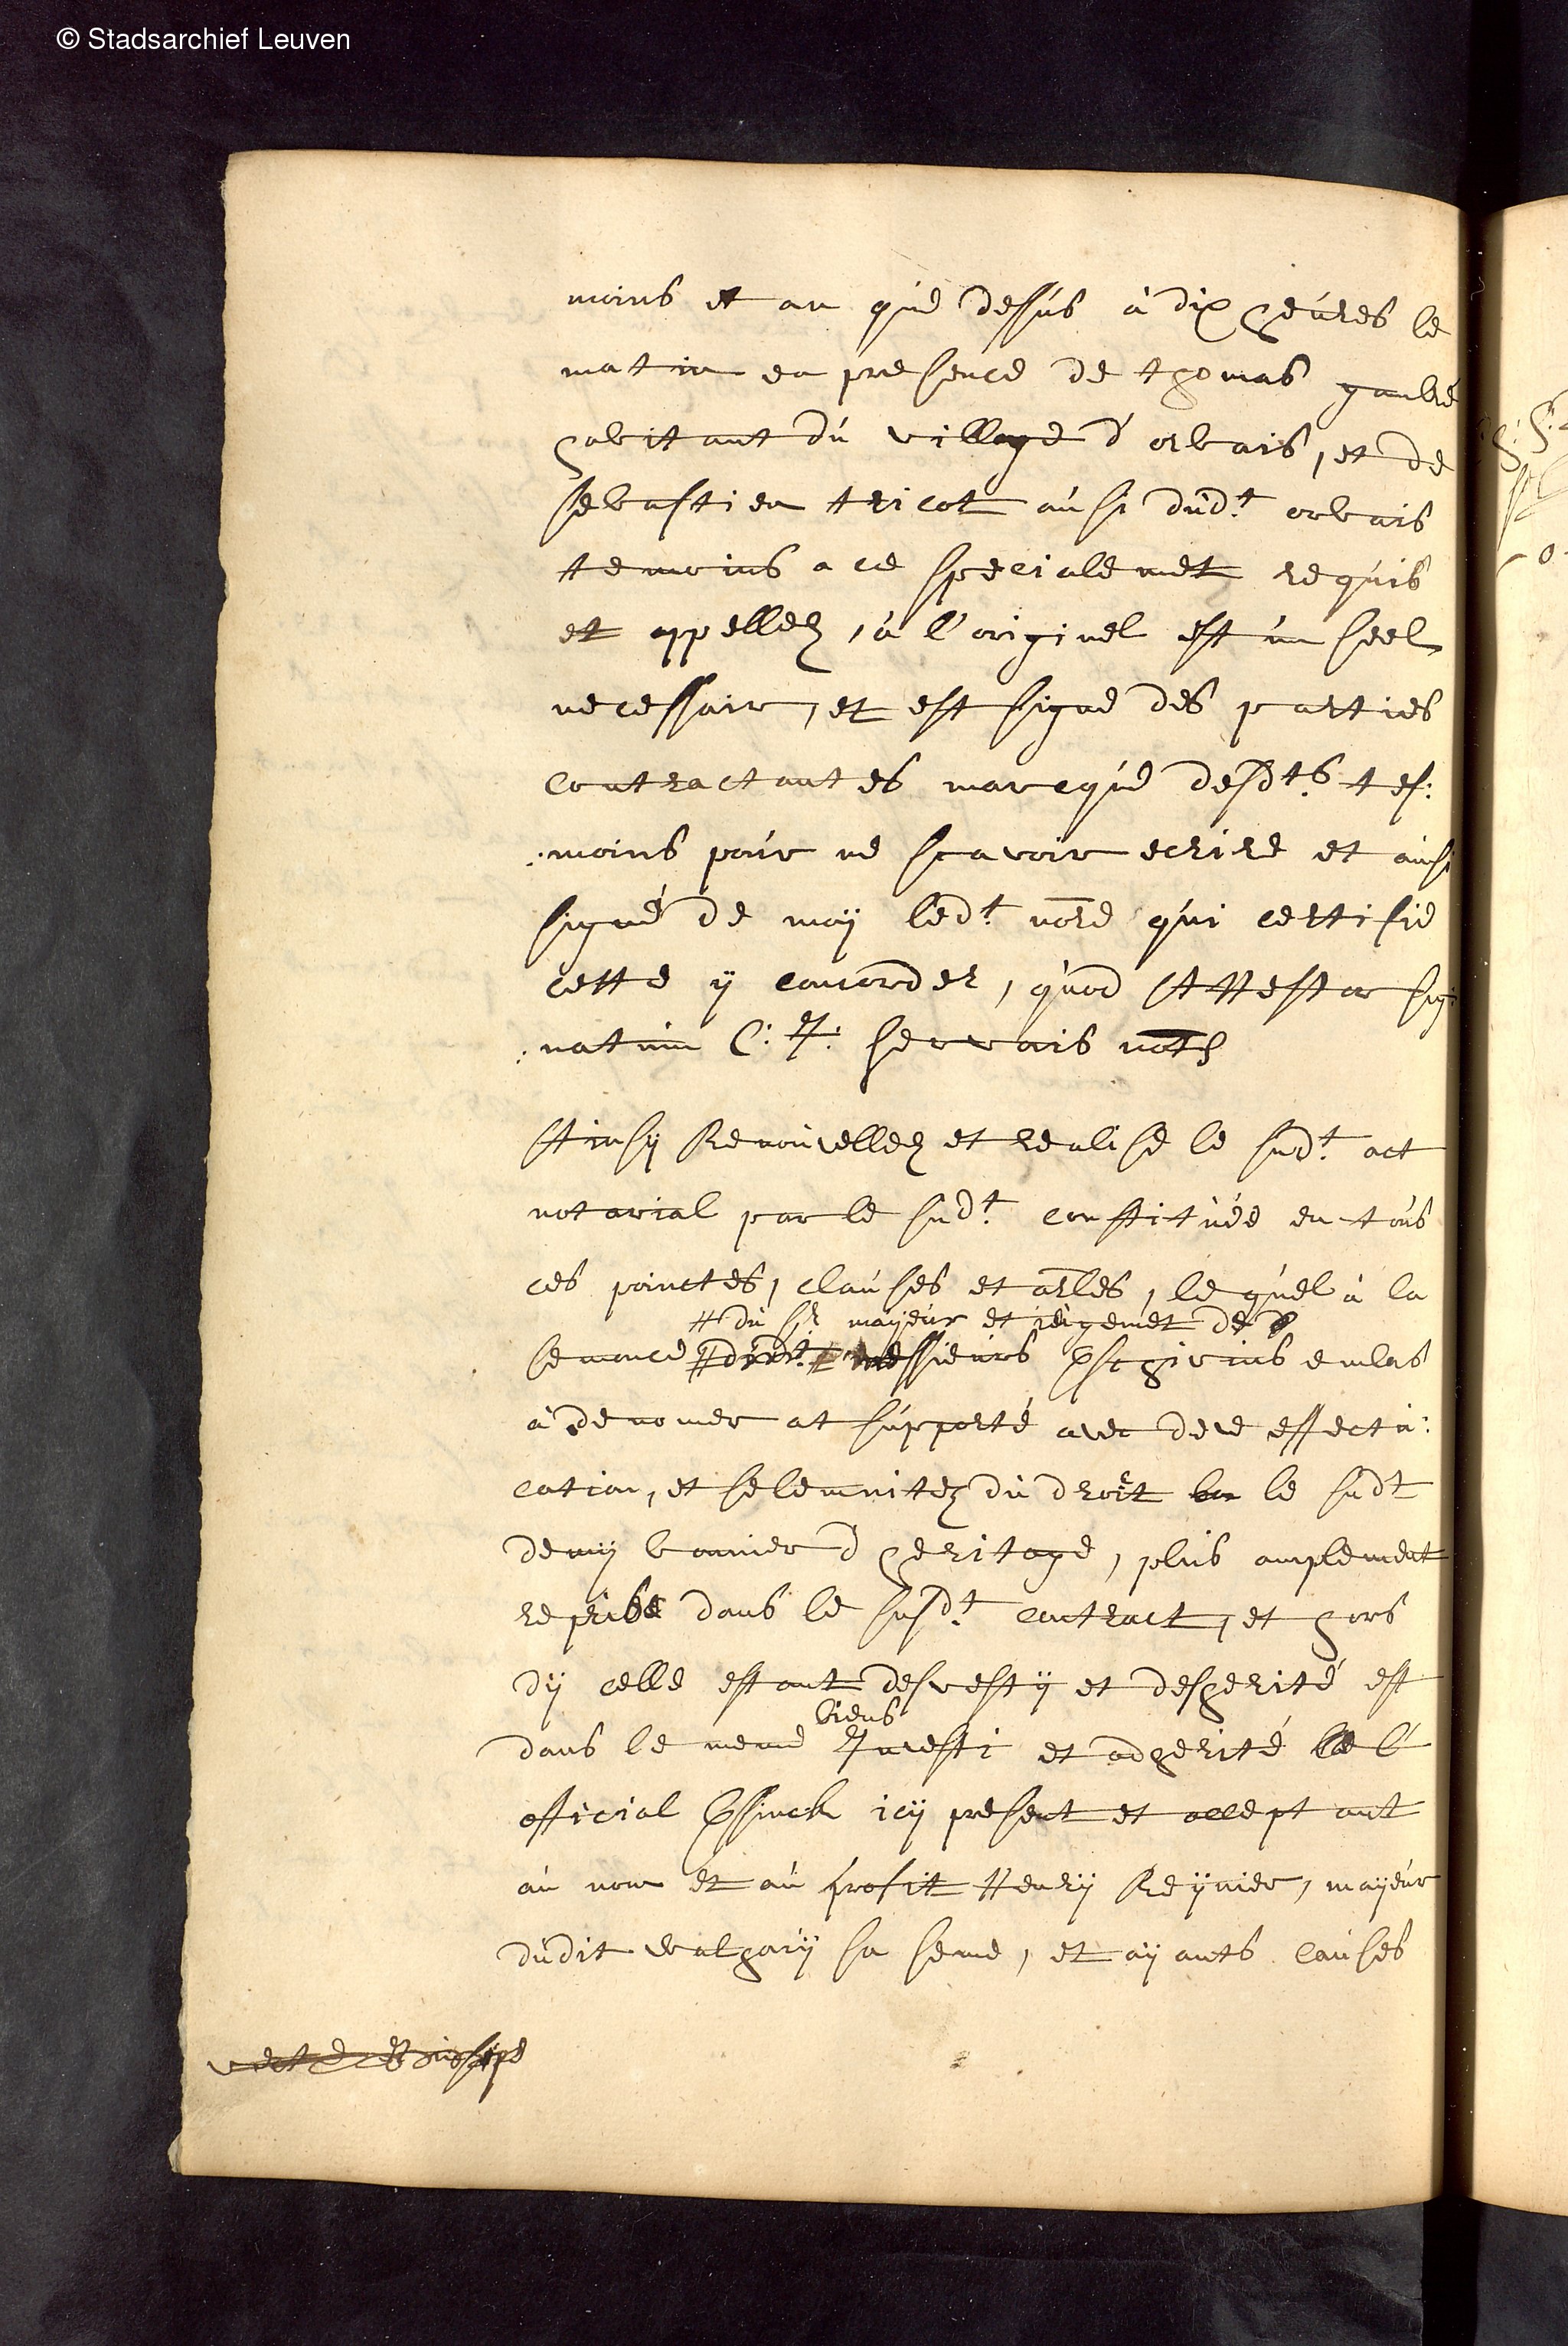 © Stadsarchief Leuven
moins et an que dessus à dix heures le
matin en presence de thomas gaulie
habitant du village d'orbais, et de
sebastien tricot aussi dudt. orbais
temoins a ce specialemet requis
et appellez, à l'originel est un seel
necessair, et est signe des parties
contractantes marcque desdts. tes:
:moins pour ne scavoir ecrire et ainsi
signé de moÿ ledt. nore qui certifie
cette ÿ concorder, quod Attestor sig:
:natum C: J: servais nots
Ainsÿ Renouvellez et realise le sudt. act
notarial par le sudt. constituée en tous
ces poinctes, clauses et arles, le quel à la
# du sr mayeur et jeugemet de
semonce messieurs Eschevins embas
à denomer at supporté avec deue effectu:
cation, et solemnitez du droit le sudt
demÿ bonnier d heritage, plus amplement
reprise dans le susdt. contract, et hors
dÿ celle estant desvestÿ et desherité est
biens
dans le meme Jnvesti et adherité l'
official icÿ present et acceptant
au nom et au profit Henrÿ Reÿnier, maÿeur
dudit walhaiÿ sa feme, et aÿants causes